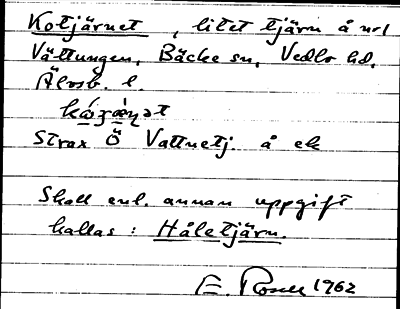 Kotjärnet, litet tjärn å nr 1
Vättungen, Bäcke sn, Vedbo hd,
Älvsb. l.
Strax Ö Vattnetj. å ek
Skall enl. annan uppgift
kallas: Håletjärn.
E. Rosell 1962